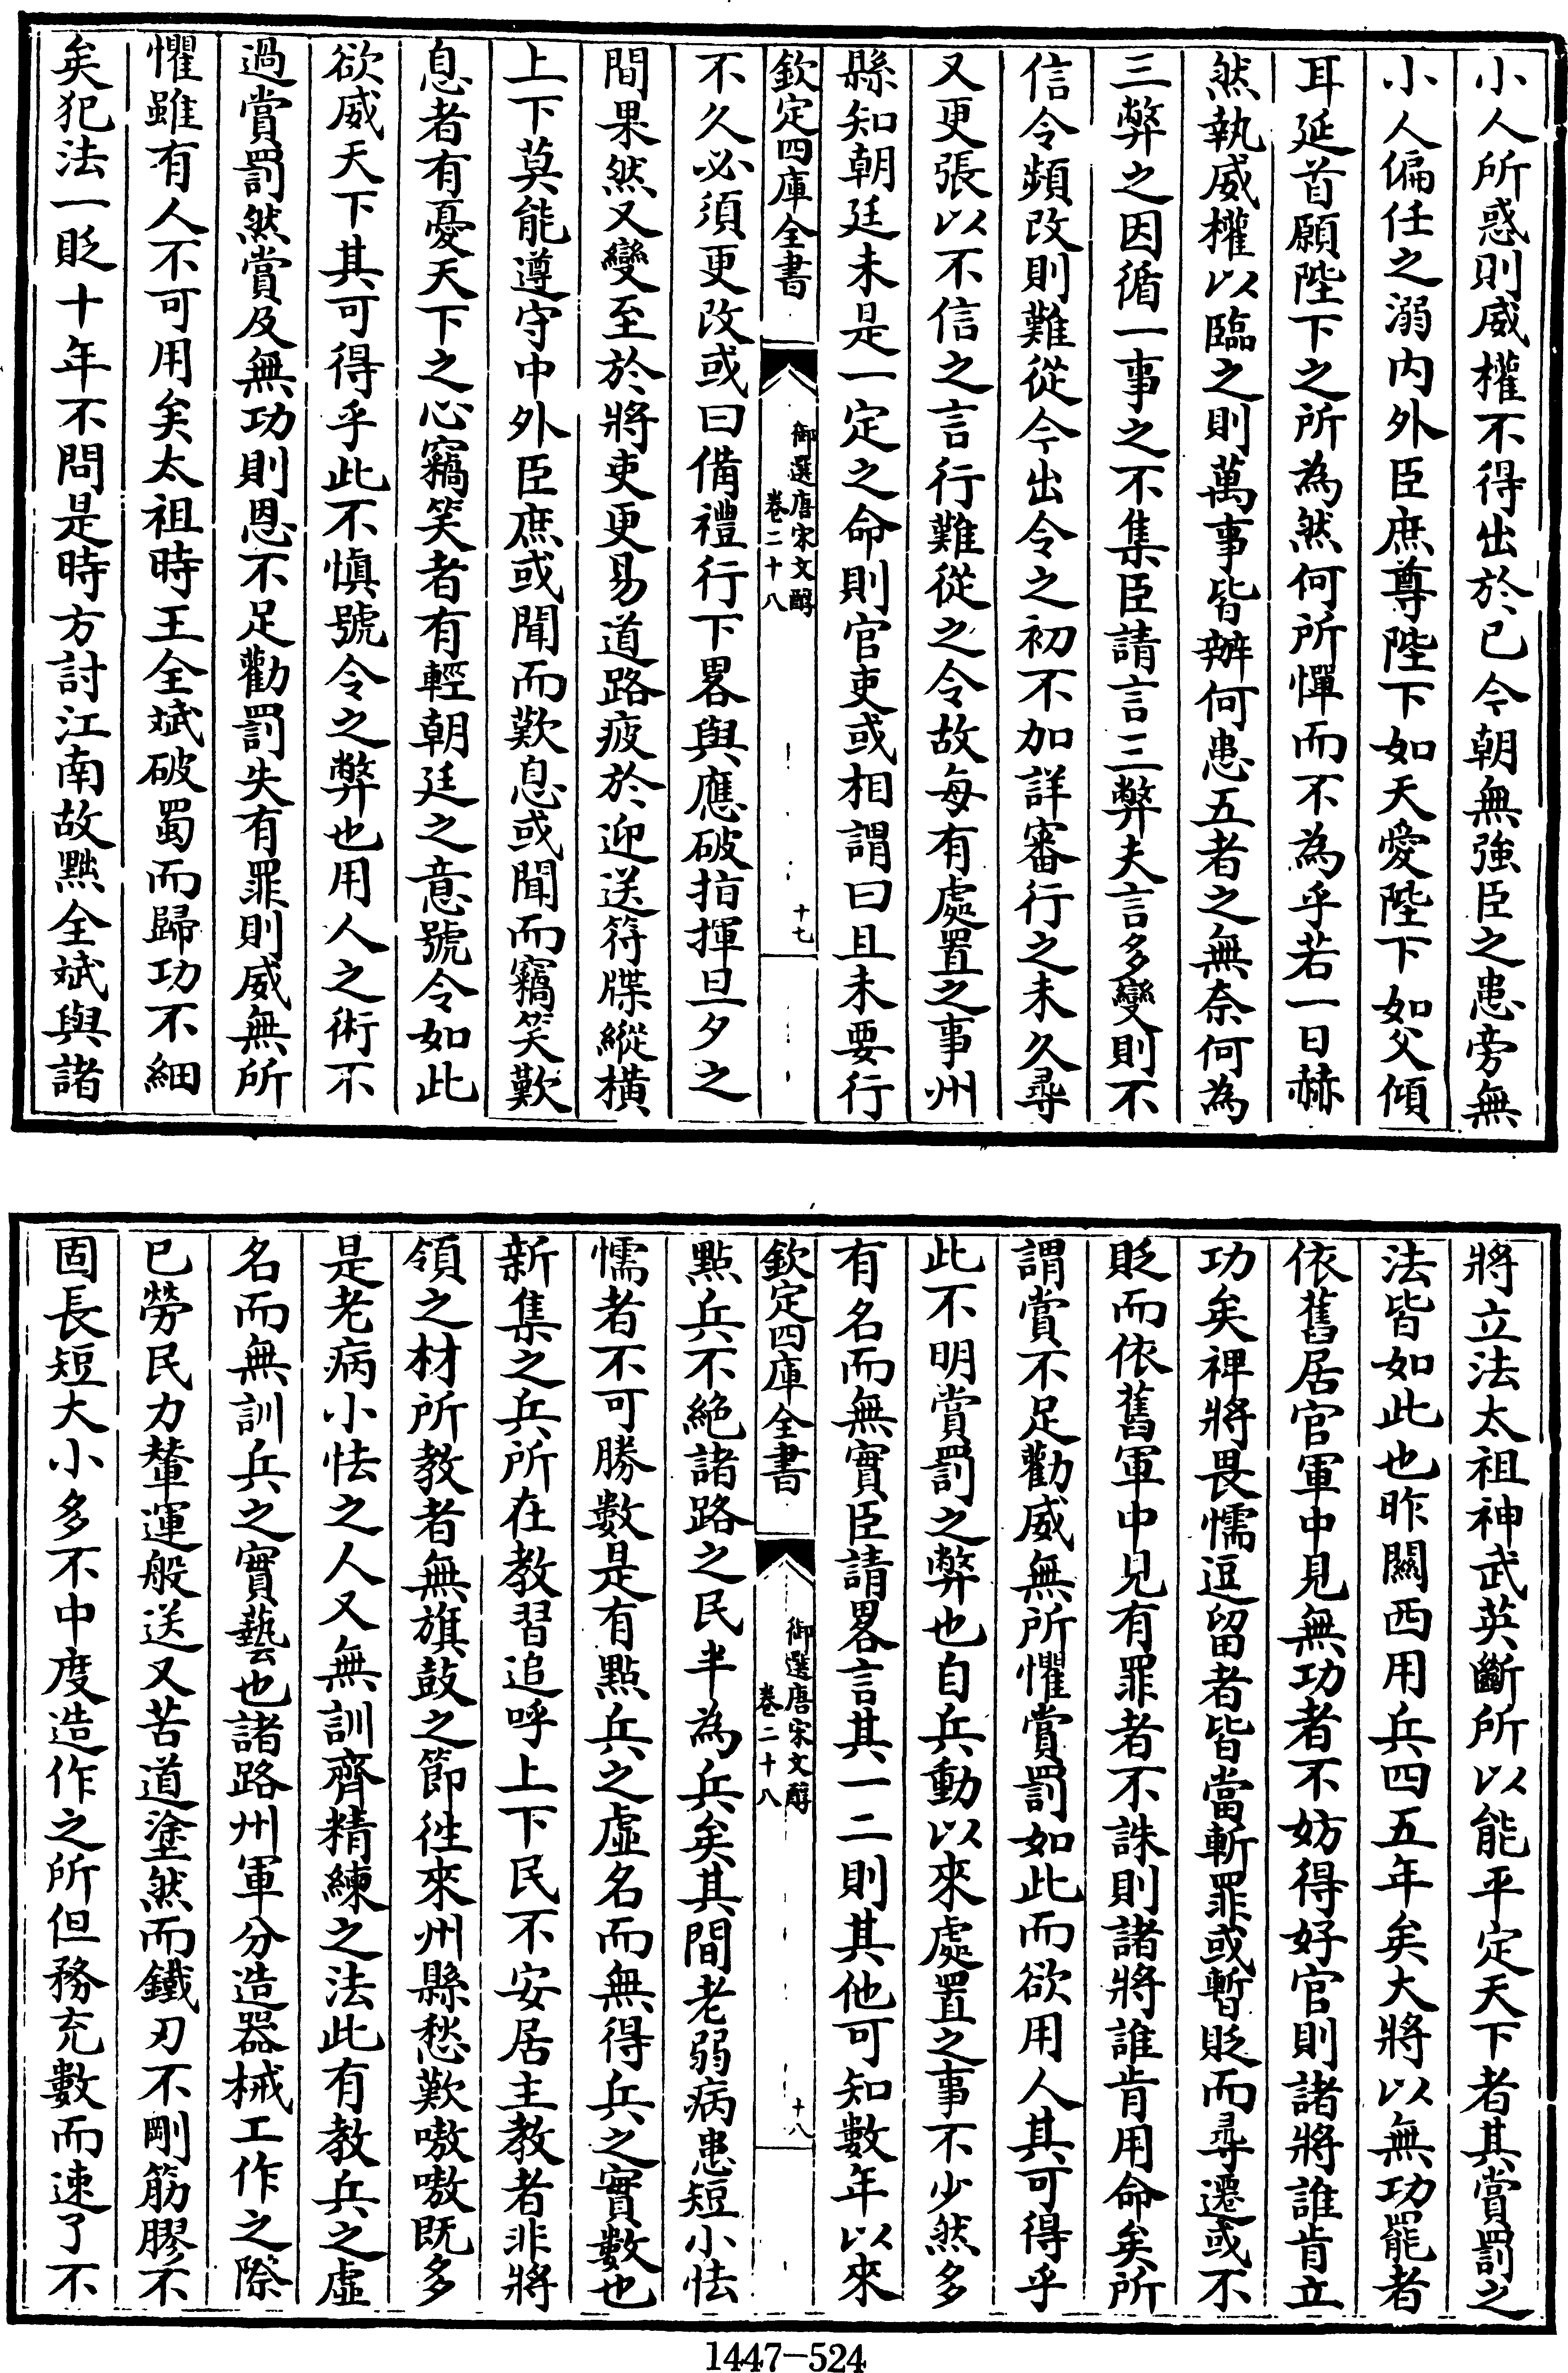 小人所惑則威權不得出於已今朝無強臣之患旁無
小人偏任之溺内外臣庶尊陛下如天愛陛下如父傾
耳延首願陛下之所為然何所憚而不為乎若一日赫
然執威權以臨之則萬事皆辦何患五者之無奈何為
三弊之因循一事之不集臣請言三弊夫言多變則不
信令頻改則難從今出令之初不加詳審行之未久尋
又更張以不信之言行難從之令故每有處置之事州
縣知朝廷未是一定之命則官吏或相謂曰且未要行
欽定四庫全書
御選唐宋文醇
卷二十八
十七
不久必須更改或曰備禮行下畧與應破指揮旦夕之
間果然又變至於將吏更易道路疲於迎送符牒縱橫
上下莫能遵守中外臣庶或聞而歎息或聞而竊笑歎
息者有憂天下之心竊笑者有輕朝廷之意號令如此
欲威天下其可得乎此不慎號令之弊也用人之術不
過賞罰然賞及無功則恩不足勸罰失有罪則威無所
懼雖有人不可用矣太祖時王全斌破蜀而歸功不細
矣犯法一貶十年不問是時方討江南故黜全斌與諸
將立法太祖神武英斷所以能平定天下者其賞罰之
法皆如此也昨關西用兵四五年矣大將以無功罷者
依舊居官軍中見無功者不妨得好官則諸將誰肯立
功矣裨將畏懦逗留者皆當斬罪或暫貶而尋遷或不
貶而依舊軍中見有罪者不誅則諸將誰肯用命矣所
謂賞不足勸威無所懼賞罰如此而欲用人其可得乎
此不明賞罰之弊也自兵動以來處置之事不少然多
有名而無實臣請畧言其一二則其他可知數年以來
欽定四庫全書
御選唐宋文醇
卷二十八
十八
點兵不絶諸路之民半為兵矣其間老弱病患短小怯
懦者不可勝數是有點兵之虛名而無得兵之實數也
新集之兵所在教習追呼上下民不安居主教者非將
領之材所教者無旗鼓之節徃來州縣愁歎嗷嗷既多
是老病小怯之人又無訓齊精練之法此有教兵之虛
名而無訓兵之實藝也諸路州軍分造器械工作之際
已勞民力輦運般送又苦道塗然而鐵刃不剛筋膠不
固長短大小多不中度造作之所但務充數而速了不
1447-524